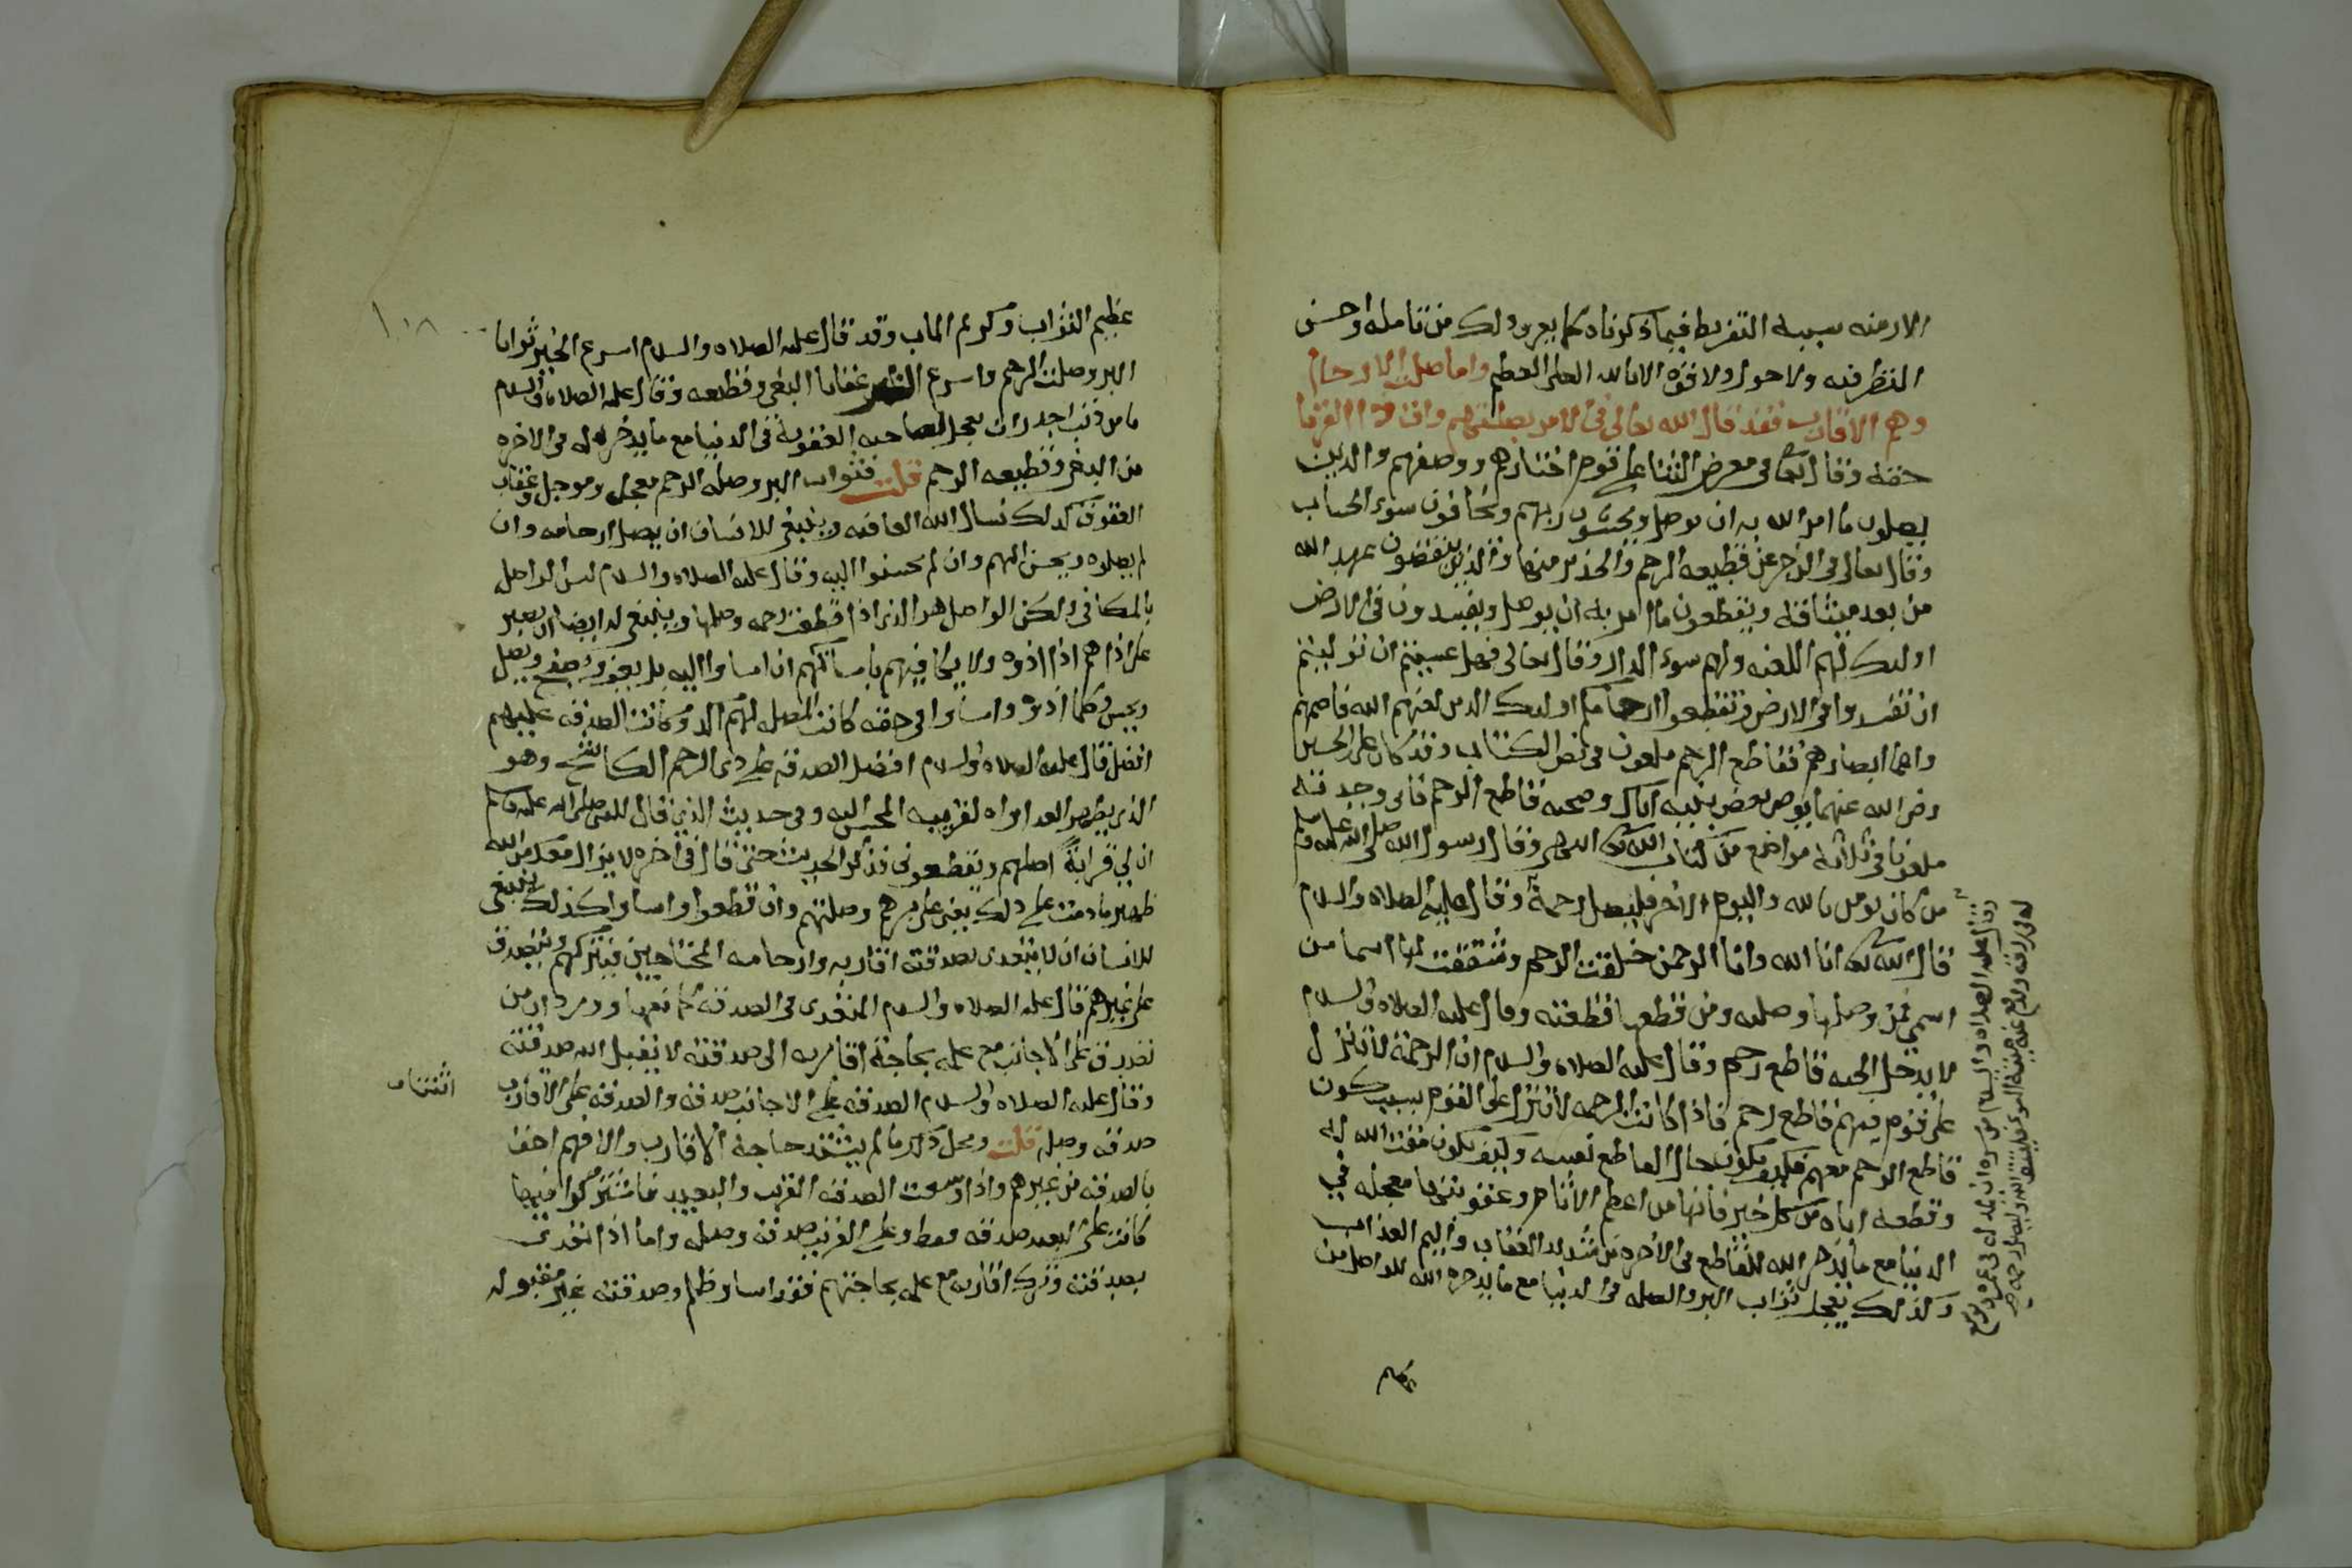 الازمنه سببه التفريط فيما ذكرناه كما يعرف ذلك من تامله واحسن
النظر فيه ولا حول ولا قوه الا بالله العلي العظيم واما صلت الارحام
وهم الاقارب فقد قال الله تعالى في الامر بصلتهم وات ذا القربا
حقه وقال تعالى في معرض الثنا على قوم اختارهم ووصفهم والدين
يصلون ما امر الله به ان يوصل ويخشون ربهم ويخافون سوء الحساب
وقال تعالى في الزجر عن قطيعه الرحم والتحذير منها والذين ينقضون عهد الله
من بعد ميثاقه ويقطعون ما امر به ان يوصل ويفسدون في الارض
اولئك لهم اللعنه ولهم سوء الدار وقال تعالى فهل عسيتم ان توليتم
ان تفسدوا في الارض وتقطعوا ارحامكم اولئك الدين لعنهم الله فاصمهم
واعما ابصارهم فقاطع الرحم ملعون في نص الكتاب وقد كان على بن الحسين
رضى الله عنهما يوصى بعض بنيه اياك وصحبه قاطع الرحم فاني وجدته
ملعونا في ثلاثه مواضع من كتاب الله وقال رسول الله صلى الله عليه وسلم
من كان يومن بالله واليوم الاخر فليصل رحمة وقال عليه الصلاه والسلام
قال الله تعالى انا الله وانا الرحمن خلقت الرحم وشققت لها اسما من
اسمي فمن وصلها وصلته ومن قطعها قطعته وقال عليه الصلاه والسلام
لا يدخل الجنه قاطع رحم وقال عليه الصلاه والسلام ان الرحمة لا تنزل
على قوم فيهم قاطع رحم فاذا كانت الرحمه لا تنزل على القوم بسبب كون
قاطع الرحم معهم فكيف يكون حال القاطع نفسه وكيف يكون مقت الله له
وقطعه اياه من كل خير فانها من اعظم الاثام وعقوبتها معجله في
الدنيا مع ما يدخر الله للقاطع في الاخره من شديد العقاب واليم العذاب
وكذلك يعجل ثواب البر والصله في الدنيا مع ما يدخره الله للواصل من
وقال عليه الصلاه والسلام من سره ان يمد له في عمره ويوسع
له في رزقه ويدفع عنه ميتة السوء فليتق الله وليصل رحمه
عظيم
١٠٨
عظيم الثواب وكريم الماب وقد قال عليه الصلاه والسلام اسرع الخير ثوابا
البر وصلت الرحم واسرع الشر عقابا البغي وقطعه وقال عليه الصلاه والسلام
ما من ذنب اجدر ان يعجل لصاحبه العقوبة في الدنيا مع ما يدخر له في الاخره
من البغي وقطيعه الرحم قلت فثواب البر وصله الرحم معجل وموجل وعقاب
العقوق كذلك نسال الله العافيه وينبغي للانسان ان يصل ارحامه وان
لم يصلوه ويحسن اليهم وان لم يحسنوا اليه وقال عليه الصلاه والسلام ليس الواصل
بالمكافى ولكن الواصل هو الذي اذا قطعت رحمه وصلها وينبغي له ايضا ان يصبر
على اذاهم اذا اذوه ولا يكافيهم باساتهم ان اساوا اليه بل يعفو ويصفح ويصل
ويحسن وكلما اذوه واساوا في حقه كانت الصله لهم اكد وكانت الصدقه عليهم
افضل قال عليه الصلاه والسلام افضل الصدقه على ذي الرحم الكاشح وهو
الذي يظهر العداواه لقريبه المحسن اليه وفي حديث الذي قال للنبي صلى الله عليه وسلم
ان لي قرابةً اصلهم ويقطعوني فذكر الحديث حتى قال في اخره لا يزال معك من الله
ظهير ما دمت على ذلك يعني على برهم وصلتهم وان قطعوا واساوا كذلك ينبغي
للانسان ان لا يتعدى بصدقته اقاربه وارحامه المحتاجين فيتركهم ويتصدق
على غيرهم قال عليه الصلاه والسلام المتعدى في الصدقه كمانعها وورد ان من
تصدق على الاجانب مع علمه بحاجة اقاربه الى صدقته لا يقبل الله صدقته
وقال عليه الصلاه والسلام الصدقه على الاجانب صدقه والصدقه على الاقارب اثنتان
صدقه وصله قلت ومحل ذلك ما لم يشتد حاجة الاقارب والا فهم احق
بالصدقه من غيرهم واذا وسعت الصدقه القريب والبعيد فاشتركوا فيها
كانت على البعيد صدقه فقط وعلى القريب صدقه وصله واما اذا تعدى
بصدقته وترك اقاربه مع علمه بحاجتهم فقد اسا وظلم وصدقته غير مقبوله